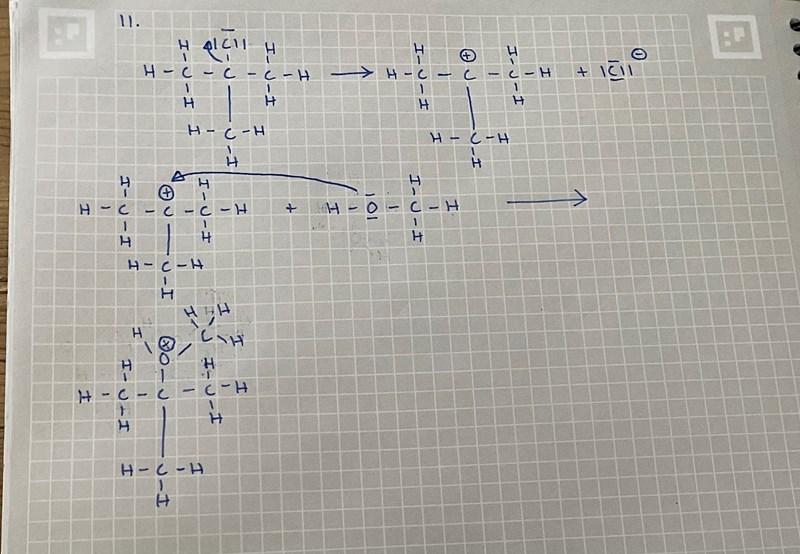 11.
H |C̅l| H
H - C - C - C - H → H - C - C⊕ - C - H + |C̲̅l|⊖
H H H H
H - C - H H - C - H
H H
H ⊕ H H
H - C - C - C - H + H - O̲̅ - C - H →
H H H
H - C - H
H
H H
H ⊕ C H
H O H
H - C - C - C - H
H H
H - C - H
H